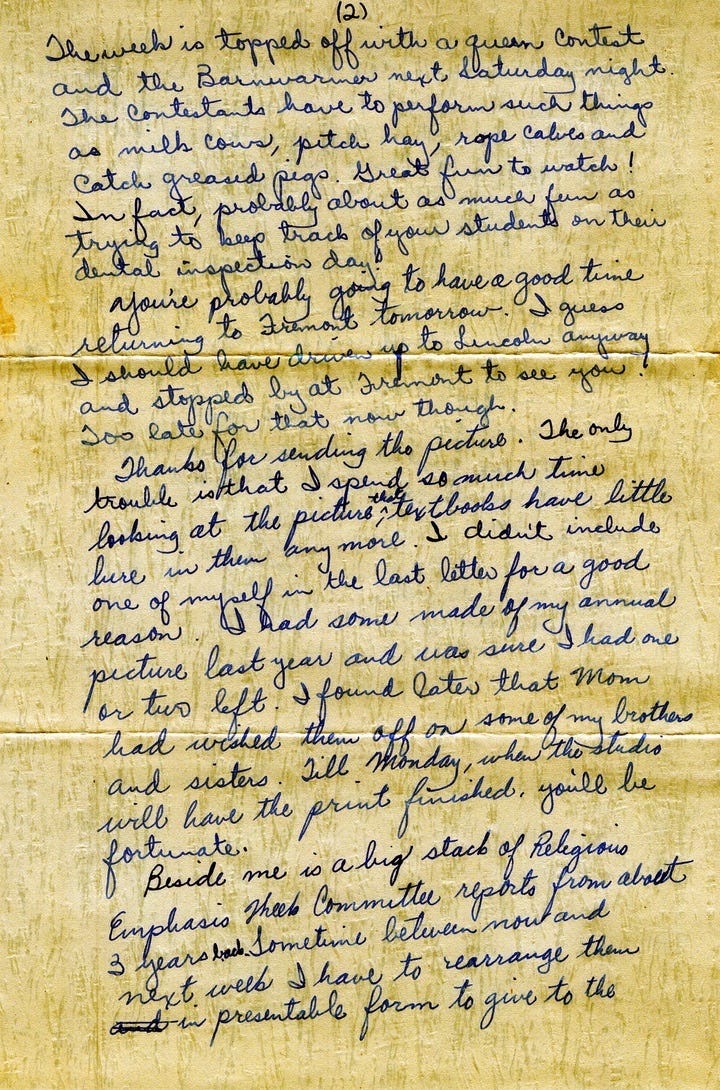 (2)
The week is topped off with a queen contest
and the Barnwarmer next Saturday night.
The contestants have to perform such things
as milk cows, pitch hay, rope calves and
catch greased pigs. Great fun to watch!
In fact, probably about as much fun as
trying to keep track of your students on their
dental inspection day!
You're probably going to have a good time
returning to Fremont tomorrow. I guess
I should have driven up to Lincoln anyway
and stopped by at Fremont to see you!
Too late for that now though.
Thanks for sending the picture. The only
trouble is that I spend so much time
looking at the picture that textbooks have little
lure in them anymore. I didn't include
one of myself in the last letter for a good
reason. I had some made of my annual
picture last year and was sure I had one
or two left. I found later that Mom
had wished them off on some of my brothers
and sisters. Till Monday, when the studio
will have the print finished, you'll be
fortunate.
Beside me is a big stack of Religious
Emphasis Week Committee reports from about
3 years back. Sometime between now and
next week I have to rearrange them
and in presentable form to give to the